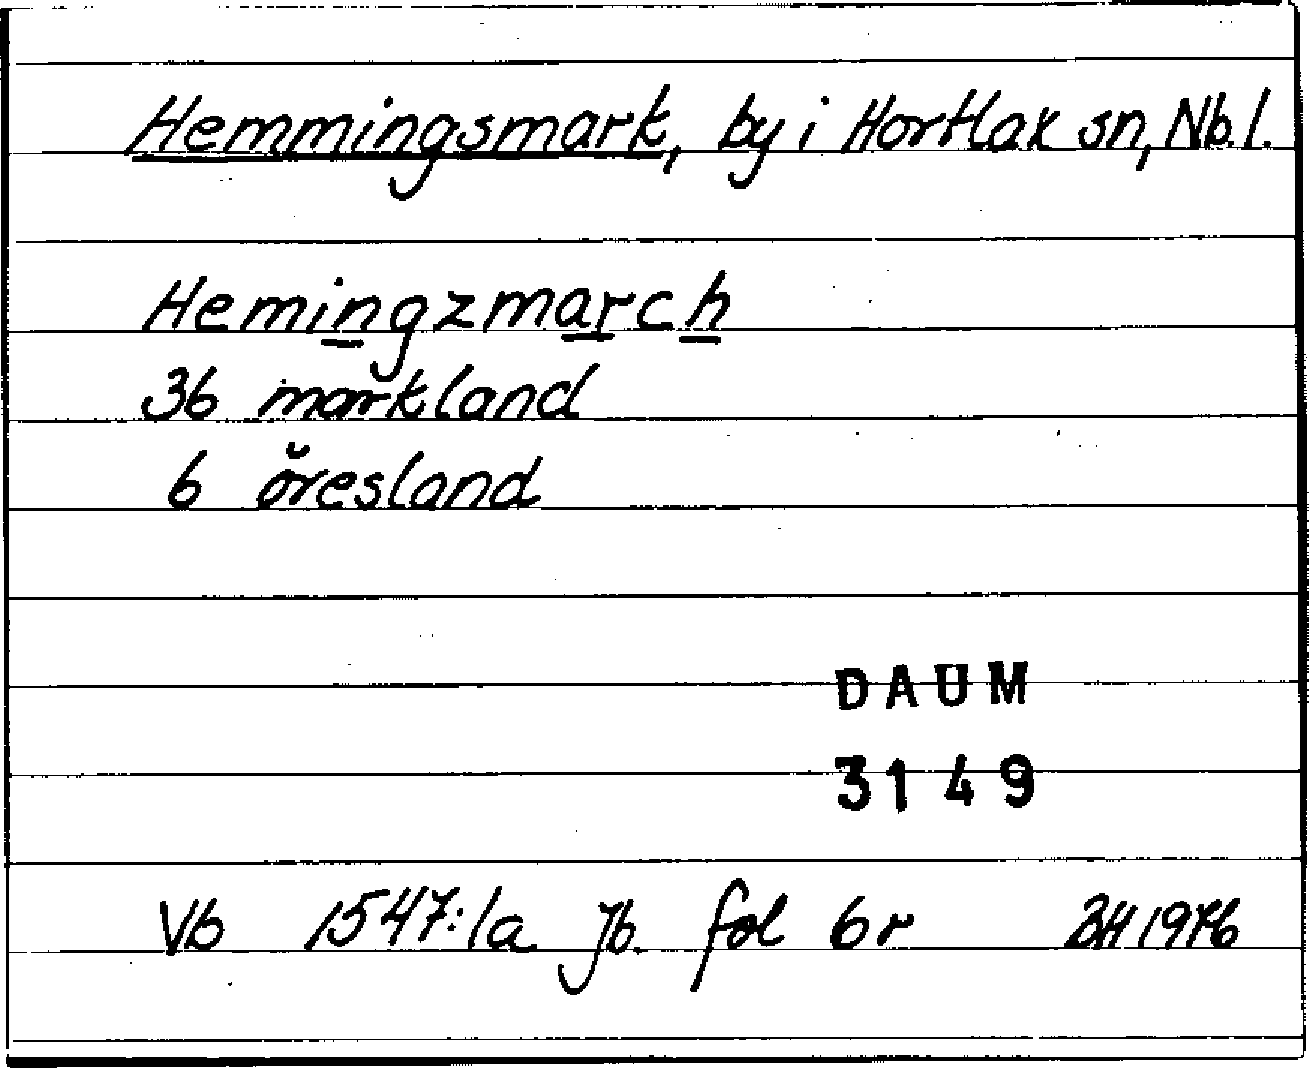 Hemmingsmark, by i Hortlax sn, Nb. l.
Hemingzmarch
36 markland
6 öresland
DAUM
3149
Vb 1547:1a Jb. fol 6r BH 1976